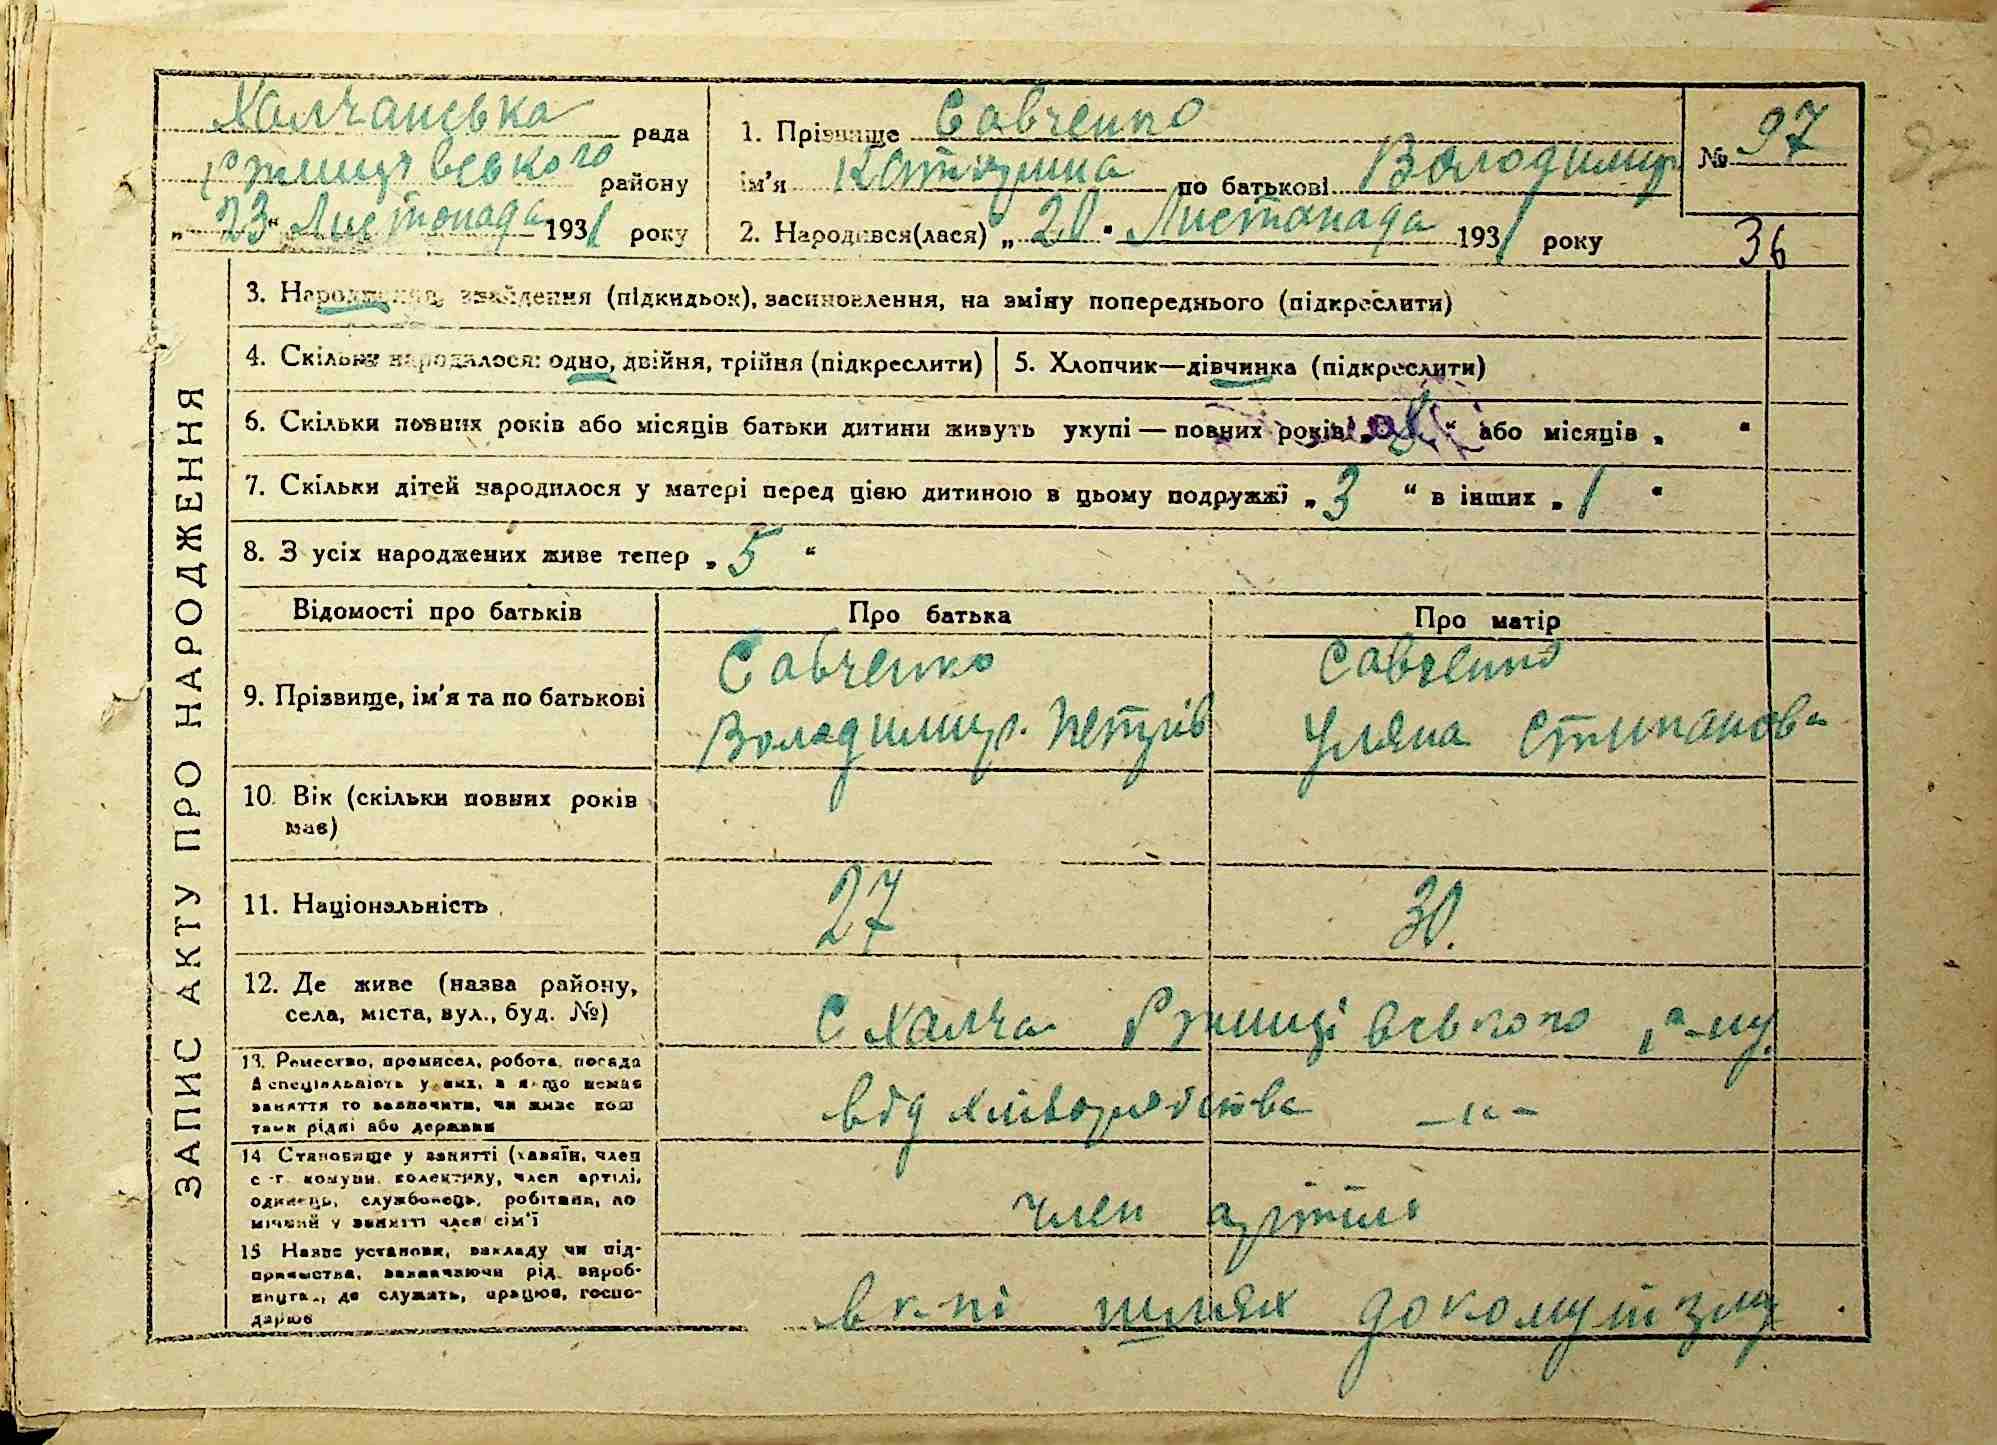 ЗАПИС АКТУ ПРО НАРОДЖЕННЯ
Халчанська рада
Ржищівського району
„23“ Листопада 1931 року
1. Прізвище Савченко
ім'я Катирина по батькові Володимир
№ 97
2. Народився(лася) „20“ Листопада 1931 року
36
3. Народження, знайдення (підкидьок), засиновлення, на зміну попереднього (підкреслити)
4. Скільки народилося: одно, двійня, трійня (підкреслити)
5. Хлопчик—дівчинка (підкреслити)
6. Скільки повних років або місяців батьки дитини живуть укупі — повних років „8“ або місяців „ “
7. Скільки дітей народилося у матері перед цією дитиною в цьому подружжі „3“ в інших „1“
8. З усіх народжених живе тепер „5“
Відомості про батьків
Про батька
Про матір
9. Прізвище, ім'я та по батькові
Савченко
Володимир. Петрів
Савченко
Уляна Стипанов-
10. Вік (скільки повних років
має)
11. Національність
27
30.
12. Де живе (назва району,
села, міста, вул., буд. №)
С Халча Ржищівського р-ну
13. Ремество, промисел, робота, посада
й спеціяльність у них, а якщо немає
заняття то зазначити, чи живе кош
тами рідні або держави
від хліборобства —"—
14 Становище у занятті (хазяїн, член
с.-г. комуни, колективу, член артілі,
одинець, службовець, робітник, по
мічний у занятті член сім'ї
член артіли
15 Назва установи, закладу чи під-
приємства, зазначаючи рід вироб-
ництва, де служить, працює, госпо-
дарює
в к-пі шлях до комунізму